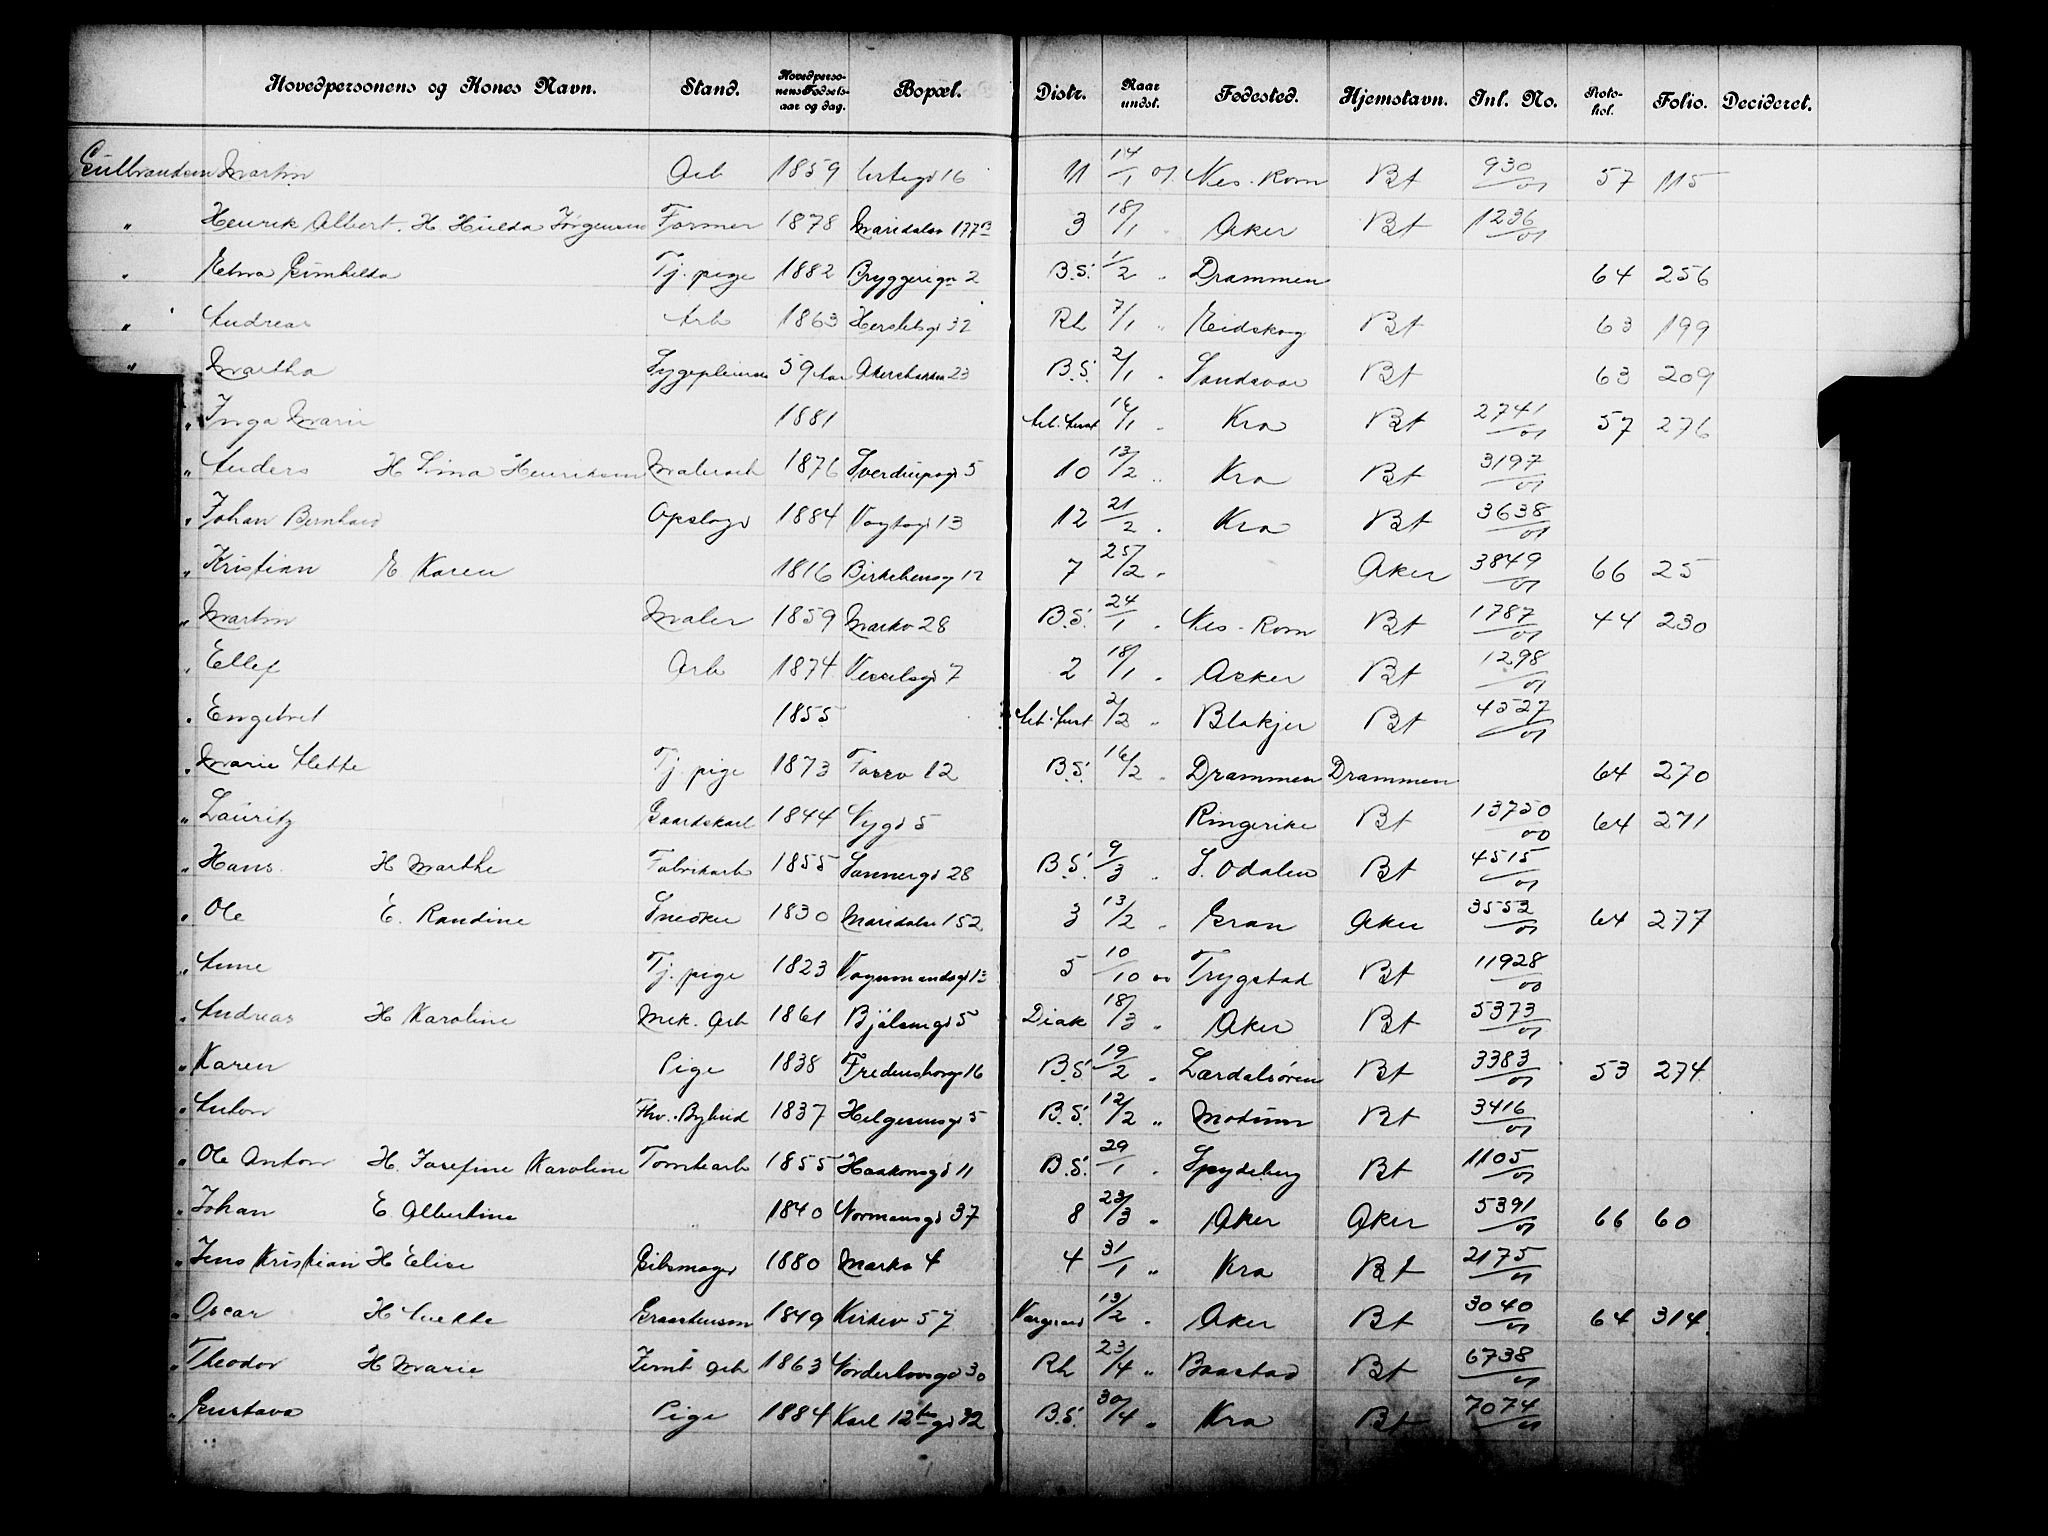 Hovedpersonens og Kones Navn. Stand. Hovedpersonens Fødselsaar og dag. Bopæl. Distr. Naar undst. Fødested. Hjemstavn. Inl. No. Protokol. Folio. Decideret.
Gulbrandsen Martin Arb 1859 16 11 14/1 01 Nes. Rom Bt 930/01 57 115
" Henrik Albert. H Hulda Jørgensen Former 1878 Maridalsv 177B 3 18/1 " Aker Bt 1236/01
" Gunhilda Tj. pige 1882 Bryggerigt 2 B.S. 1/2 " Drammen 64 256
" Andreas Arb 1863 Herslebsgt 32 Rh 7/1 " Eidskog Bt 63 199
" Martha 59 Aar Akersbakken 23 B.S. 2/1 " Sandsvær Bt 63 209
" Inga Marie 1881 16/1 " Kra Bt 2741/01 57 276
" Anders H Lina Henriksen 1876 Sverdrupsgt 5 10 13/2 " Kra Bt 3197/01
" Johan Bernhard Opslagr 1884 Vogtsgt 13 12 21/2 " Kra Bt 3638/01
" Kristian E Karen 1816 Birkebeinergt 12 7 25/2 " Aker 3849/01 66 25
" Martin Maler 1859 Markv 28 B.S. 24/1 " Nes. Rom Bt 1787/01 44 230
" Ellef Arb 1874 Vesselsgt 7 2 18/1 " Asker Bt 1298/01
" Engebret 1855 2/2 " Blakjer Bt 4527/01
" Marie Mette Tj. pige 1873 Torvv 12 B.S. 16/2 " Drammen Drammen 64 270
" Lauritz Gaardskarl 1844 Nygt 5 Ringerike Bt 13750/00 64 271
" Hans H Marthe Fabrikarb 1855 Sannergt 28 B.S. 9/3 " S. Odalen Bt 4515/01
" Ole E. Randine Snedker 1830 Maridalsv 152 3 13/2 " Gran Aker 3553/01 64 277
" Anne Tj. pige 1823 Vognmandsgt 13 5 10/10 00 Trygstad Bt 11928/00
" Andreas H Karoline Mek. Arb 1861 Bjølsengt 5 Diak 18/3 " Aker Bt 5373/01
" Karen Pige 1838 Fredensborgv 16 B.S. 19/2 " Lærdalsøren Bt 3383/01 53 274
" Anton Fhv. Bybud 1837 Helgesensgt 5 B.S. 12/2 " Modum Bt 3416/01
" Ole Anton H Josefine Karoline Tomtearb 1855 Haakonsgt 11 B.S. 29/1 " Spydeberg Bt 1105/01
" Johan E Albertine 1840 Normansgt 37 8 23/3 " Aker Aker 5391/01 66 60
" Jens Kristian H Elise Gibsmager 1880 Markv 4 4 31/1 " Kra Bt 2175/01
" Oscar H Anette 1849 Kirkev 57 13/2 " Aker Bt 3040/01 64 314
" Theodor H Marie Jernb Arb 1863 Norderhovsgt 30 Rh 23/4 " Baastad Bt 6738/01
" Gustava Pige 1884 Karl 12tes gt 32 B.S. 30/4 " Kra Bt 7074/01